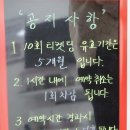 '공지사항'
1 10회 티켓팅 유효기간은
5개월 입니다.
2. 1시간 내에 예약취소는
1회차감 됩니다
3 예약시간 경과시